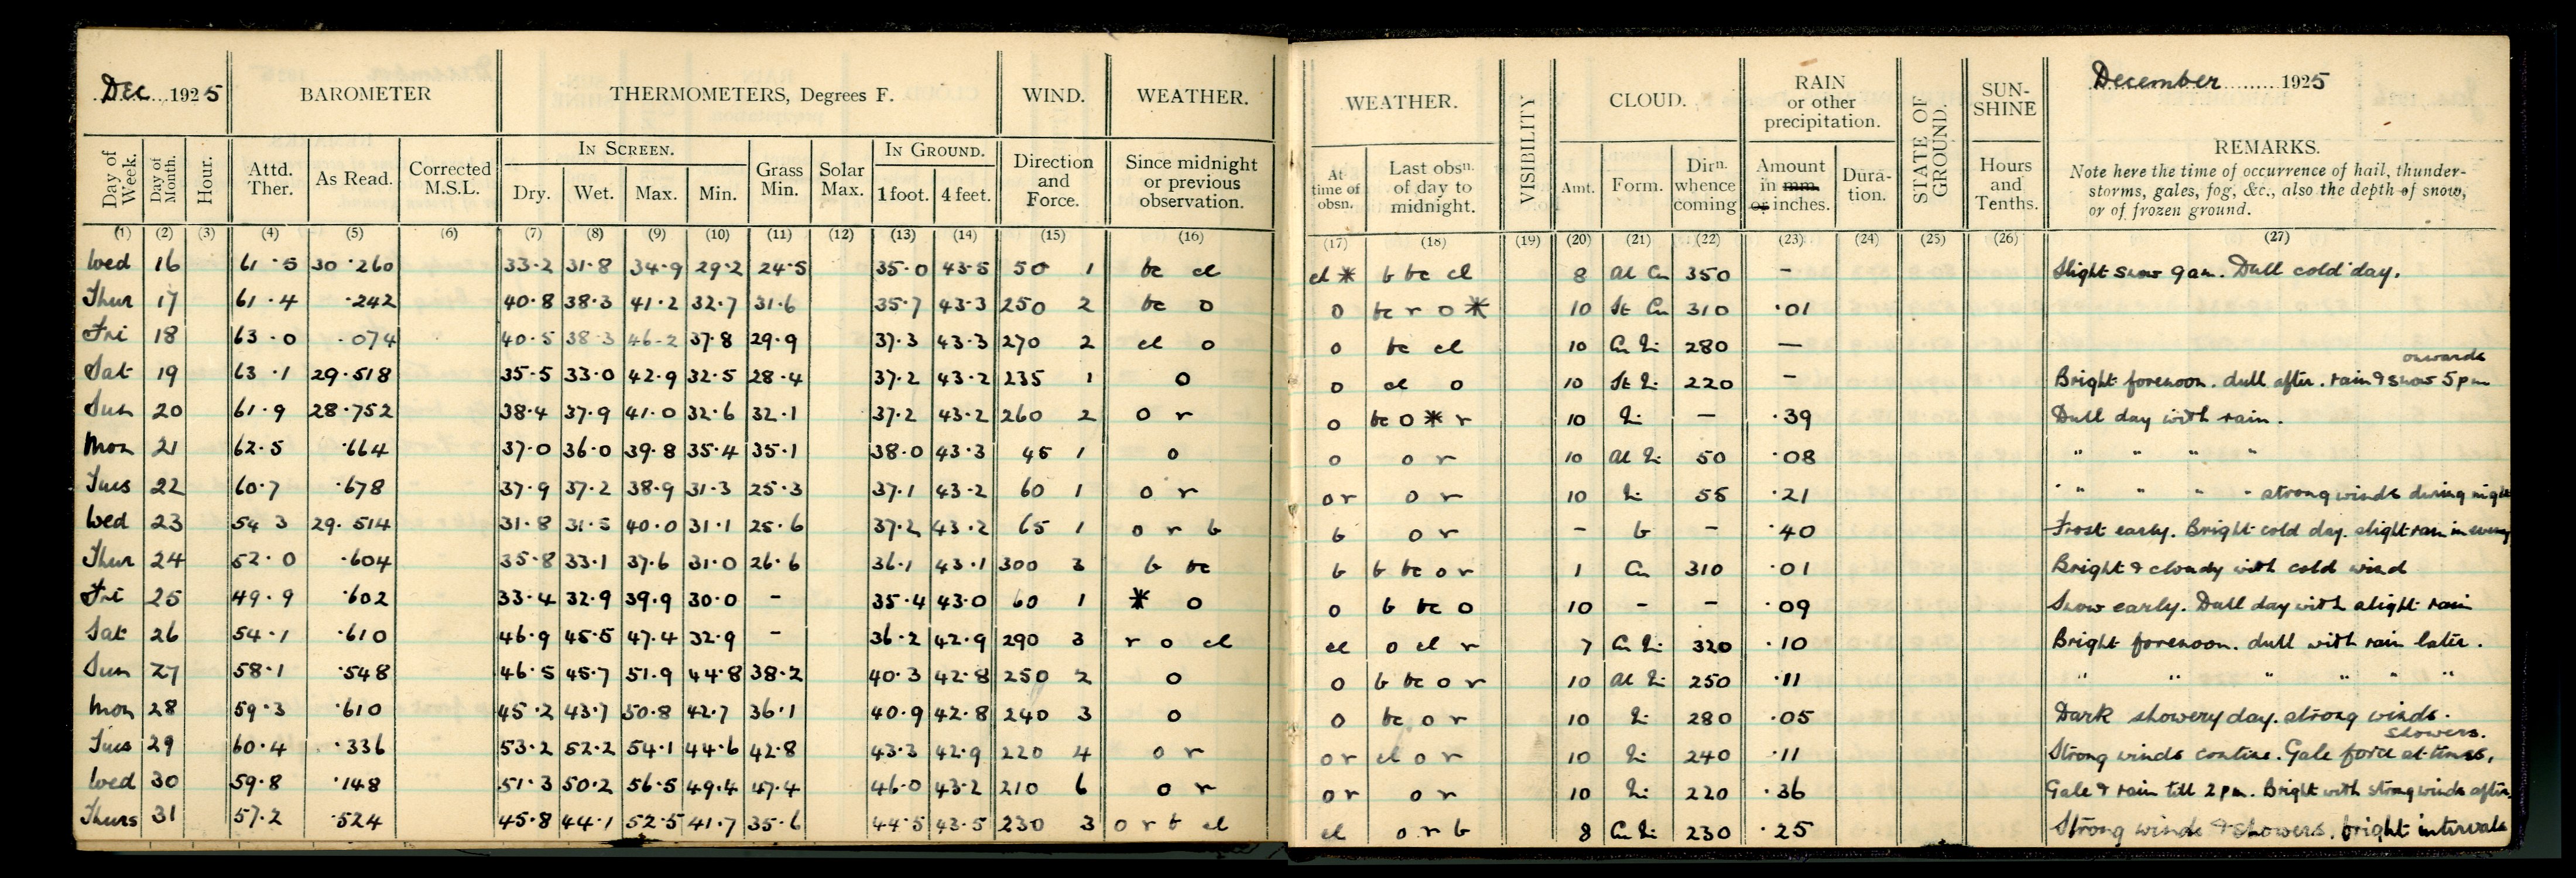 Dec 1925 BAROMETER THERMOMETERS, Degrees F. WIND. WEATHER. WEATHER. VISIBILITY CLOUD. RAIN or other precipitation. STATE OF GROUND. SUN-SHINE December 1925
Day of Week. Day of Month. Hour. Attd. Ther. As Read. Corrected M.S.L. IN SCREEN. Dry. Wet. Max. Min. Grass Min. Solar Max. IN GROUND. 1 foot. 4 feet. Direction and Force. Since midnight or previous observation. At time of obsn. Last obsn. of day to midnight. Amt. Form. Dirn. whence coming Amount in mm. or inches. Dura-tion. Hours and Tenths. REMARKS.
Note here the time of occurrence of hail, thunder-
storms, gales, fog, &c., also the depth of snow,
or of frozen ground.
(1) (2) (3) (4) (5) (6) (7) (8) (9) (10) (11) (12) (13) (14) (15) (16) (17) (18) (19) (20) (21) (22) (23) (24) (25) (26) (27)
Wed 16 61.5 30.260 33.2 31.8 34.9 29.2 24.5 35.0 43.5 50 1 bc cl cl * b bc cl 8 Al Cu 350 – Slight snow 9am. Dull cold day.
Thur 17 61.4 .242 40.8 38.3 41.2 32.7 31.6 35.7 43.3 250 2 bc o o bc r o * 10 St Cu 310 .01
Fri 18 63.0 .074 40.5 38.3 46.2 37.8 29.9 37.3 43.3 270 2 cl o o bc cl 10 Cu Ni 280 —
Sat 19 63.1 29.518 35.5 33.0 42.9 32.5 28.4 37.2 43.2 235 1 o o cl o 10 St Ni 220 – Bright forenoon. dull after. rain & snow 5pm onwards
Sun 20 61.9 28.752 38.4 37.9 41.0 32.6 32.1 37.2 43.2 260 2 o r o bc o * r 10 Ni – .39 Dull day with rain.
Mon 21 62.5 .664 37.0 36.0 39.8 35.4 35.1 38.0 43.3 45 1 o o o r 10 Al Ni 50 .08 " " " "
Tues 22 60.7 .678 37.9 37.2 38.9 31.3 25.3 37.1 43.2 60 1 o r o r o r 10 Ni 55 .21 " " " " strong winds during night
Wed 23 54 3 29.514 31.8 31.5 40.0 31.1 25.6 37.2 43.2 65 1 o r b b o r – b – .40 Frost early. Bright cold day. slight rain in
Thur 24 52.0 .604 35.8 33.1 37.6 31.0 26.6 36.1 43.1 300 3 b bc b b bc o r 1 Cu 310 .01 Bright & cloudy with cold wind
Fri 25 49.9 .602 33.4 32.9 39.9 30.0 – 35.4 43.0 60 1 * o o b bc o 10 – – .09 Snow early. Dull day with slight rain
Sat 26 54.1 .610 46.9 45.5 47.4 32.9 – 36.2 42.9 290 3 r o cl cl o cl r 7 Cu Ni 320 .10 Bright forenoon. dull with rain later.
Sun 27 58.1 .548 46.5 45.7 51.9 44.8 38.2 40.3 42.8 250 2 o o b bc o r 10 Al Ni 250 .11 " " " " " "
Mon 28 59.3 .610 45.2 43.7 50.8 42.7 36.1 40.9 42.8 240 3 o o bc o r 10 Ni 280 .05 Dark showery day. strong winds.
Tues 29 60.4 .336 53.2 52.2 54.1 44.6 42.8 43.3 42.9 220 4 o r o r cl o r 10 Ni 240 .11 Strong winds contine. Gale force at times, showers.
Wed 30 59.8 .148 51.3 50.2 56.5 49.4 47.4 46.0 43.2 210 6 o r o r o r 10 Ni 220 .36 Gale & rain till 2pm. Bright with strong winds after.
Thurs 31 57.2 .524 45.8 44.1 52.5 41.7 35.6 44.5 43.5 230 3 o r b cl cl o r b 8 Cu Ni 230 .25 Strong winds & showers. bright intervals